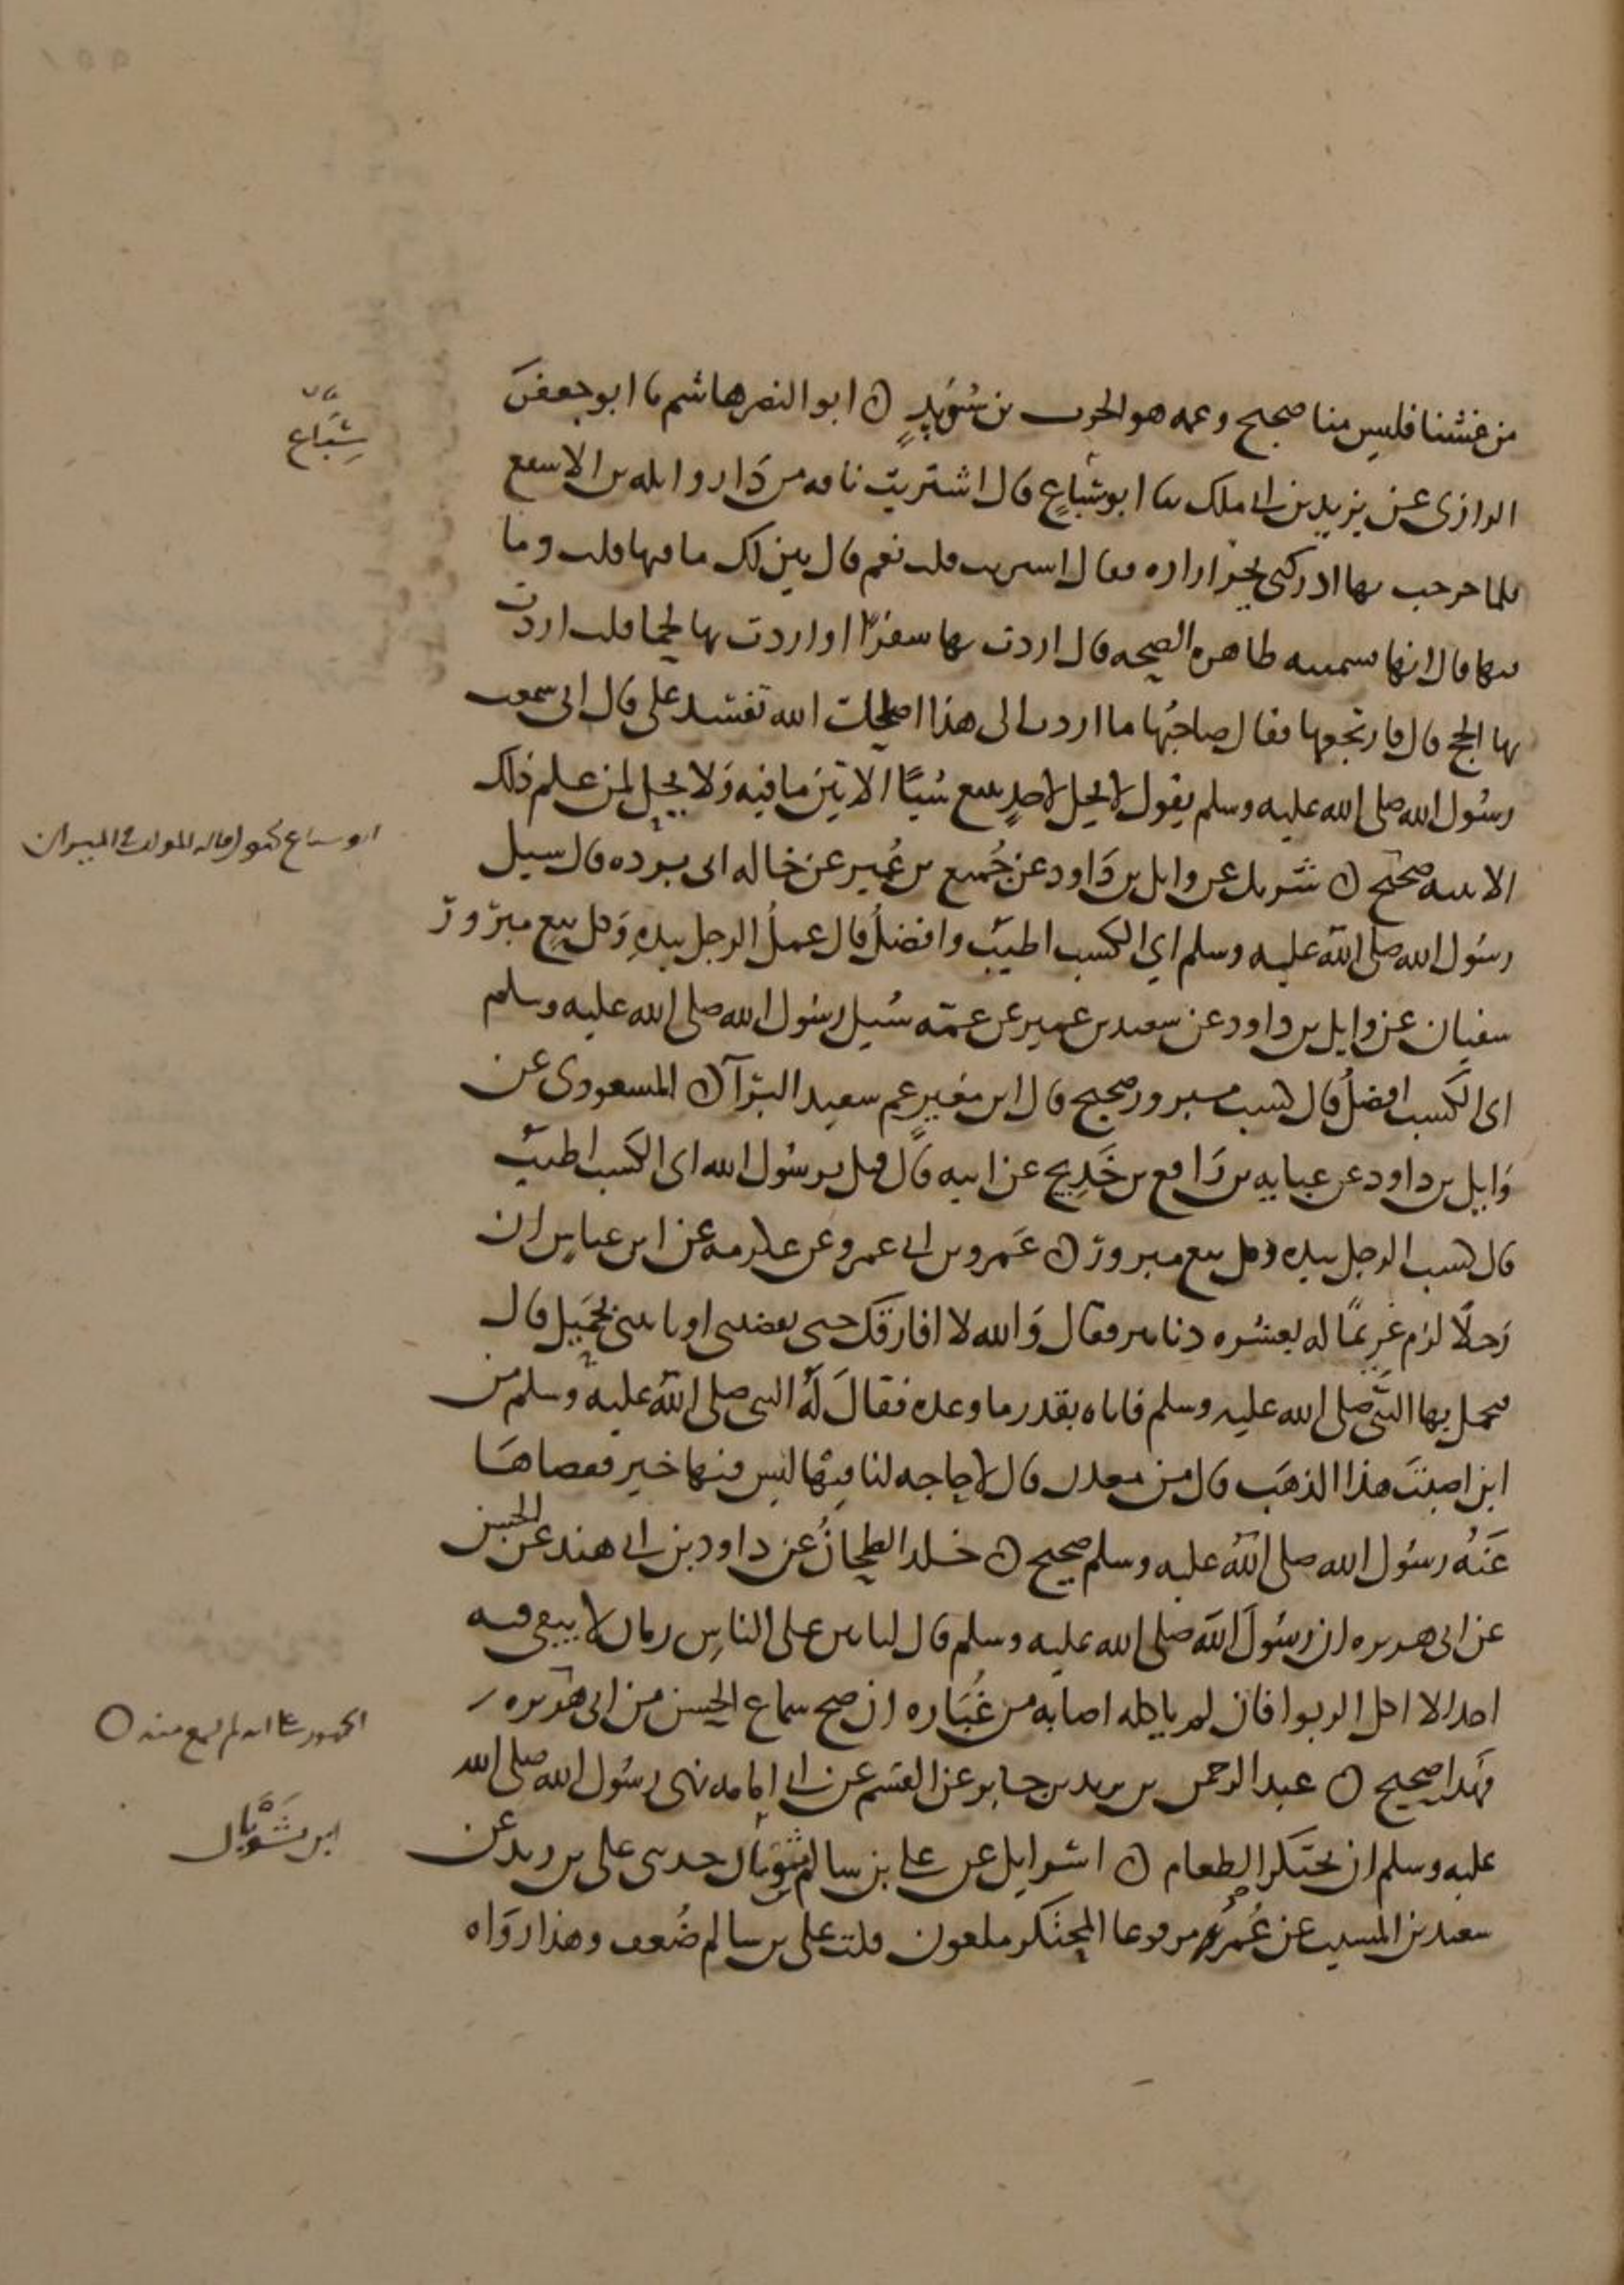 من غشنا فليس منا صحيح وعمه هو الحرث بن سُوَيدٍ ه ابو النضر هاشم نا ابو جعفر
شبَّاع
الرازى عن يزيد بن ابي ملك نا ابو شباعٍ قال اشتريت ناقه من دار واثله بن الاسقع
فلما خرجت بها ادركنى يجر ازاره فقال اشتريت قلت نعم قال بين لك ما فيها قلت وما
فيها قال انها سمينه ظاهره الصحه قال اردت بها سفرًا او اردت بها لحما قلت اردت
بها الحج قال فارتجعها فقال صاحبُها ما اردت الى هذا اصلحك الله تفسد على قال انى سمعت
رسُول الله صلى الله عليه وسلم يقول لا يحل لاحدٍ يبيع شيًا الا بيّن ما فيه وَلا يحل لمن علم ذلك
ابو سباع لخصه المولف فى الميزان
الا بينه صحيح ه شريك عن وايل بن دَاود عن جُميع بن عُمير عن خاله ابى برده قال سيل
رسُول الله صلى الله عليه وسلم اي الكسب اطيبُ وافضلُ قال عملُ الرجل بيدهِ وَكل بيع مبرُورٌ
سفيان عن وايل بن داود عن سعيد بن عمير عن عمّه سُيل رسُول الله صلى الله عليه وسلم
اى الكسب افضلُ قال كسب مبرور صحيح قال ابن معين عم سعيد البرآ ه المسعودى عن
وَايل بن داود عن عبايه بن رَافع بن خَدِيج عن ابيه قال قيل يرسُول الله اى الكسب اطيبُ
قال كسب الرجل بيده وكل بيع مبرورٌ ه عَمرو بن ابي عمرو عن عكرمه عن ابن عباسٍ ان
رَجلًا لزم غريمًا له بعشره دنانير فقال وَالله لا افارقك حتى تقضينى او تاتينى بحَمِيل قال
فتحمل بها النبىُّ صلى الله عليه وسلم فاتاه بقدر ما وعده فقالَ لَهُ النبى صلى الله عليه وسلم من
اين اصبتَ هذا الذهَب قال من معدن قال لا حاجه لنا فيها ليس فيها خير فقضاهَا
عَنهُ رسُول الله صلى الله عليه وسلم صحيح ه خلد الطحانُ عن داود بن ابي هند عن الحسن
عن ابى هريره ان رسُولَ الله صلى الله عليه وسلم قال لياتين على الناسِ زمان لا يبقى فيه
احد الا اكل الربوا فان لم ياكله اصابه من غُبَاره ان صح سماع الحسن من ابى هريره
الجمهور على انه لم يسمع منه ه
فهَذا صحيح ه عبد الرحمن بن يزيد بن جابر عن القسم عن ابي امامه نهى رسُول الله صلى الله
ابن ثَوْبَال
عليه وسلم ان يحتكر الطعام ه اسرايل عن علي بن سالم بن ثوبال حدثنى على بن زيد عن
سعيد بن المسيب عن عُمَر مرفوعا المحتكر ملعون قلت على بن سالم ضُعف وهذا روَاه